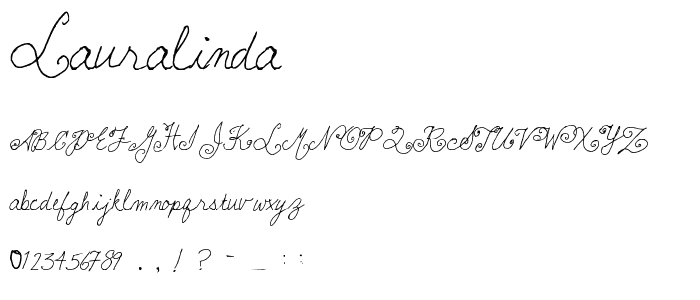 Lauralinda
ABCDEFGHIJKLMNOPQRSTUVWXYZ
abcdefghijklmnopqrstuvwxyz
0123456789 . , ! ? - _ : ;